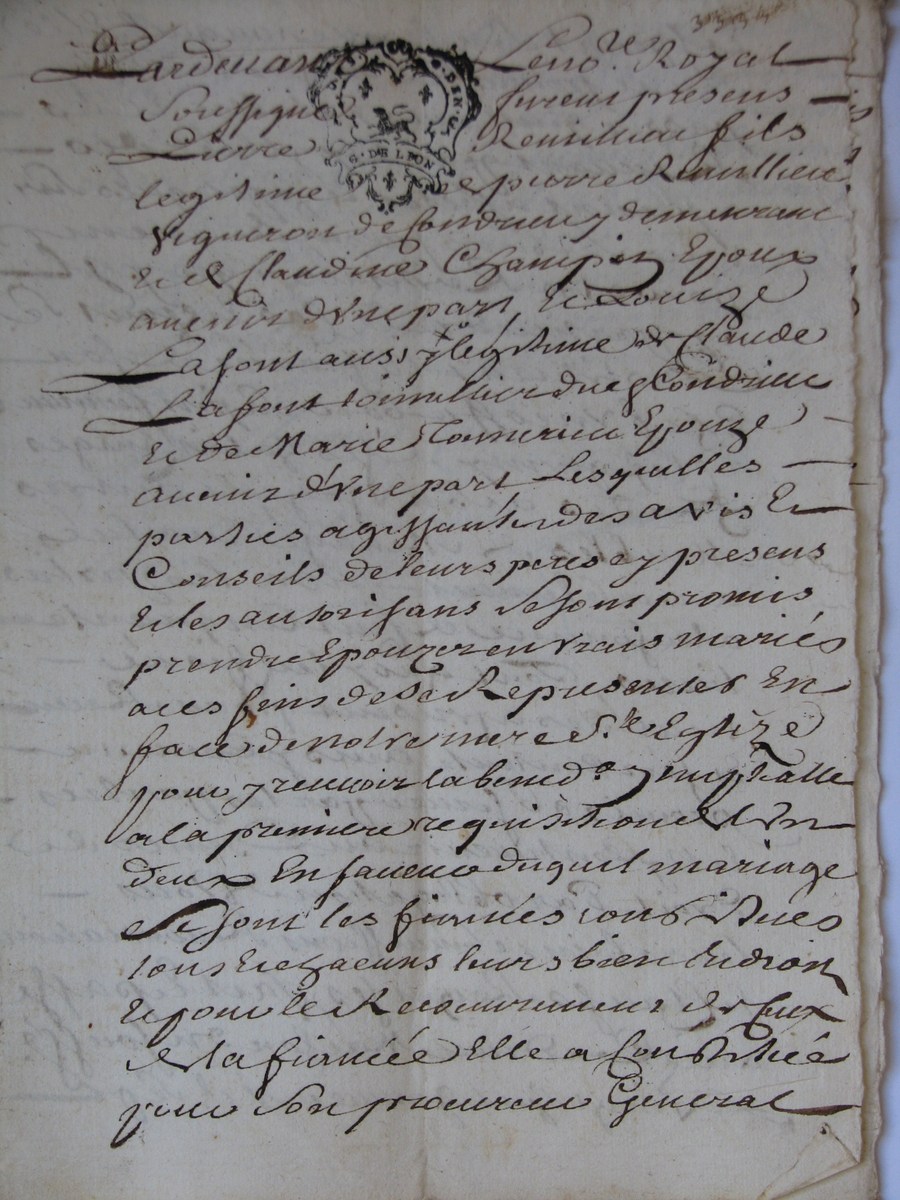 Pardevant Le no.re Royal
Soussigné furent presens
Pierre Remillieu fils
G. DE LYON
legitime de pierre Remillieu
vigneron de Condrieu y demeurant
Et de Claudine Champin Epoux
avenir d'une part, Et Louize
Lafont aussy legitime de Claude
Lafont tonnellier dud Condrieu
Et de Marie Epouze
avenir d'une part Lesquelles
parties agissantes des avis Et
Conseils de leurs peres cy presens
Et les autorisans Se sont promis
prendre Epouzer en vrais mariés
a ces fins de Se Representer En
face de notre mere S.te Eglize
pour y recevoir la bened.on nuptialle
a la premiere requisition de l'un
deux En faveur duquel mariage
Se sont les fiancés constitués
tous Et chacuns leurs bien Et droit
Et pour le Recouvrement de Ceux
de la fiancée Elle a Constitué
pour Son procureur General